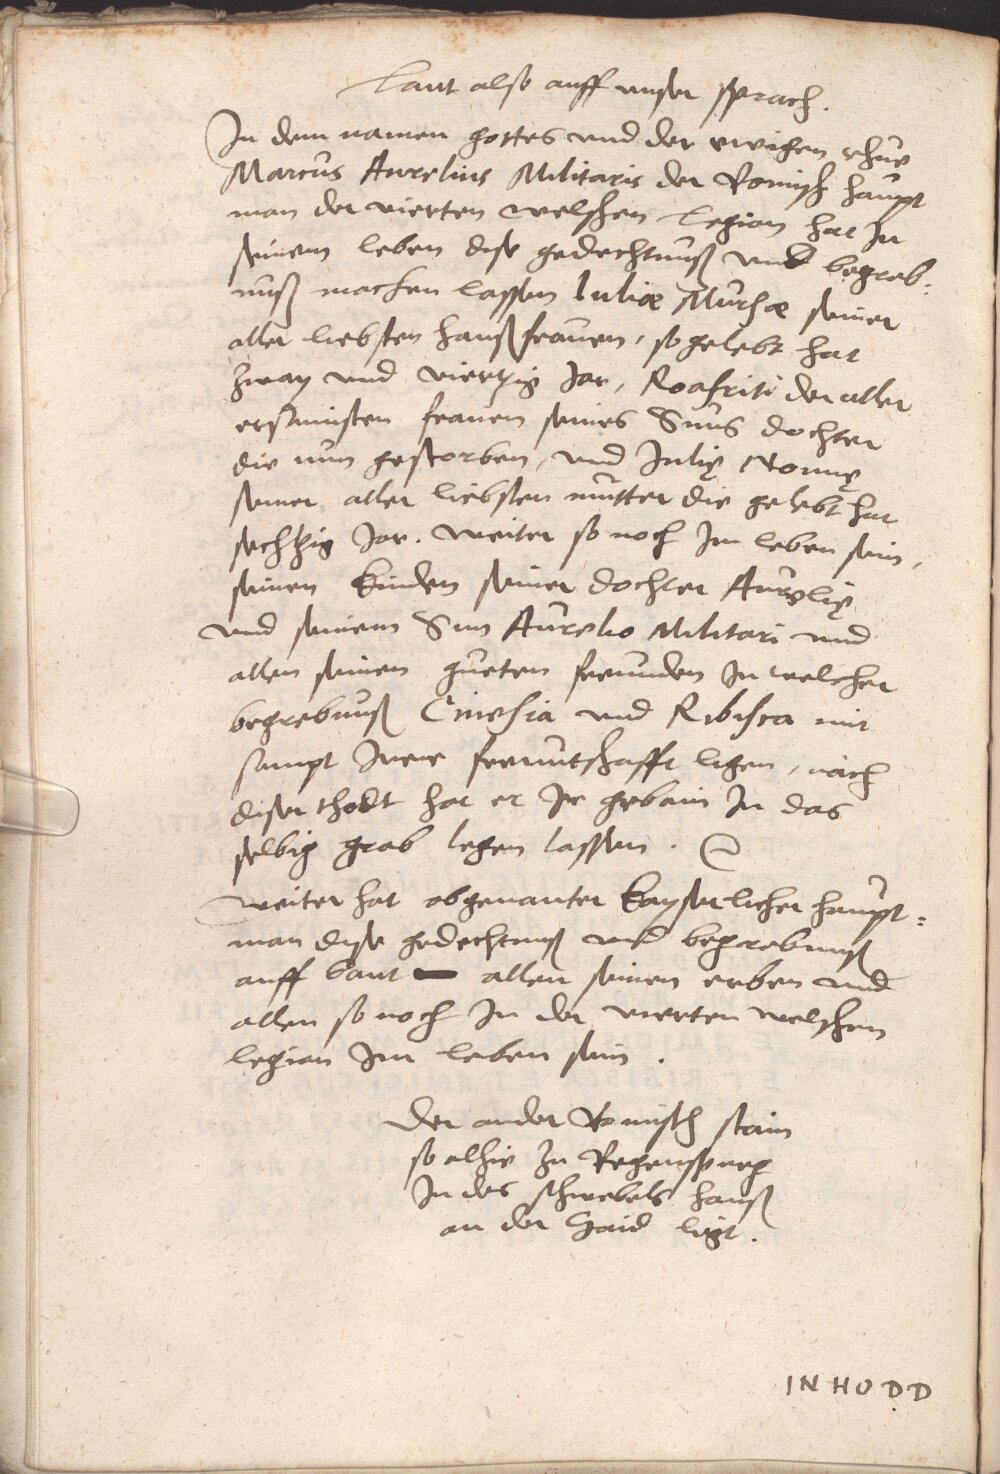 Laut also auff unser sprach.
In dem namen gottes und der ewichen rhue
Marcus Aurelius Militaris der Romisch haupt
man der vierten welschen Legion hat In
seinem leben dise gedechtnuß und begreb=
nuß machen lassen Iuliæ Mursæ seiner
aller liebsten haußfrauen, so gelebt hat
zway und viertzig Jar, Roafriti der aller
ersamisten frauen seines Suns dochter
die nun gestorben, und Julię Nonnę
seiner aller liebsten mutter die gelebt hat
sechtzig Jar. Weiter so noch Im leben sein,
seinen kinden seiner dochter Aurelię
und seinem Sun Aurelio Militari und
allen seinen gueten freunden In welcher
begrebnuß Cinesia und Ribisca mit
sampt Irer freuntschafft ligen, nach
diser thodt hat er Ir gebain In das
selbig grab legen lassen.
Weiter hat obgenanter kayserlicher haupt=
man dise gedechtnuß und begrebnuß
auff baut allen seinen erben und
allen so noch In der vierten welschen
legion Im leben sein.
Der ander Romisch stain
so alhie zu Regenspurg
In des schwebels hauß
an der Haid ligt.
IN HO D D